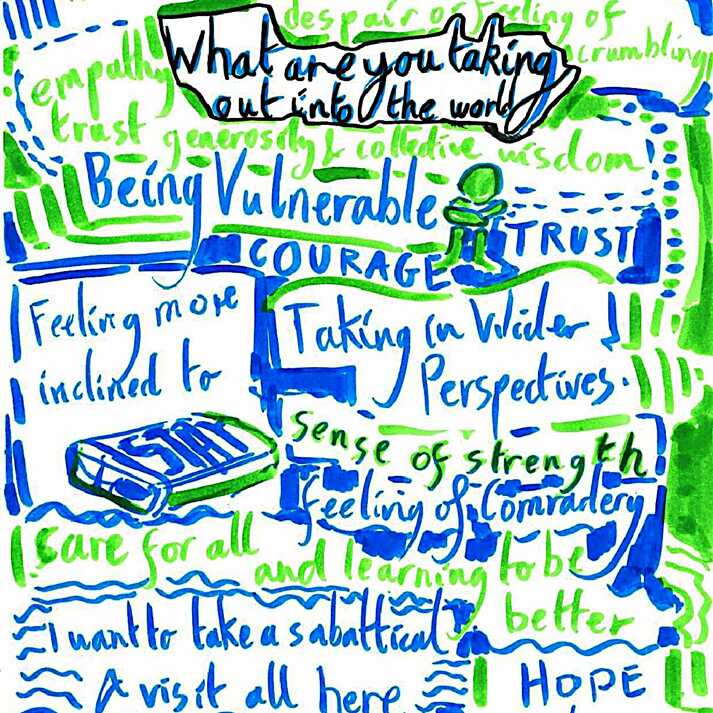 despair or feeling of
crumbling
What are you taking
out into the world
empathy
trust generosity & collective wisdom
Being Vulnerable
COURAGE
TRUST
Feeling more
inclined to
STAY
Taking in Wider
Perspectives.
sense of strength
feeling of Comradery
care for all
and learning to be
better
I want to take a sabattical
A visit all here
HOPE